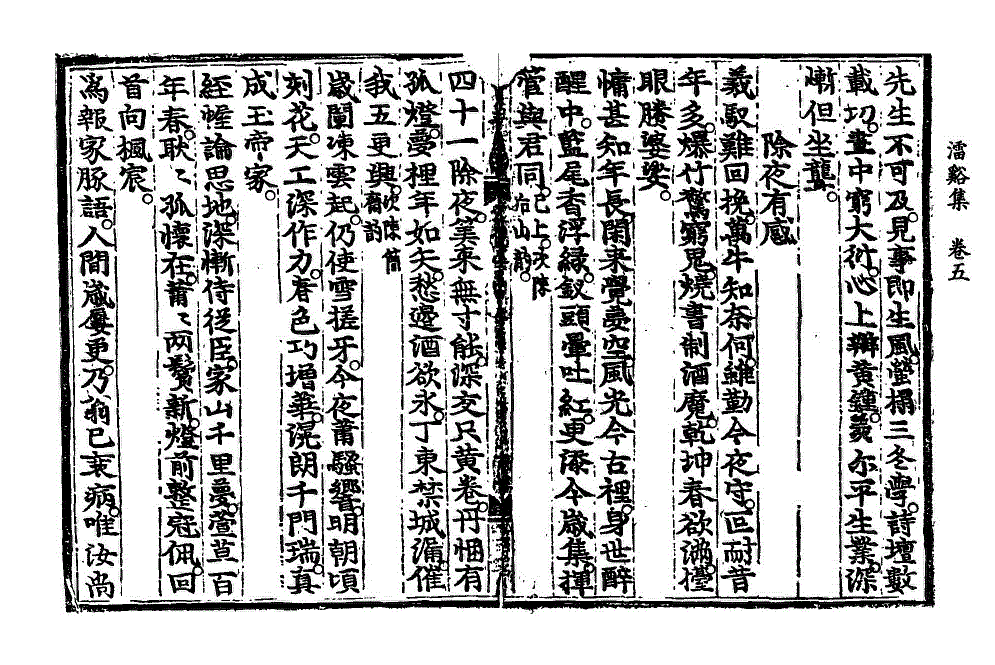 㵢谿集 卷五
先生不可及。見事即生風。螢榻三冬學。詩壇數
載功。畫中窮大衍。心上辨黃鍾。嗟尔平生業。深
慚但坐聾。
除夜有感
羲馭難回挽。萬牛知奈何。雖勤今夜守。叵耐昔
年多。爆竹驚窮鬼。燒書制酒魔。乾坤春欲滿。擡
眼勝婆娑。
慵甚知年長。閑来覺夢空。風光今古裡。身世醉
醒中。藍尾香浮綠。釵頭暈吐紅。更添今歲集。揮
管與君同。已上次陳右山韵。
四十一除夜。筭來無寸能。深交只黃卷。丹悃有
孤燈。夢裡年如矢。愁邊酒欲氷。丁東禁城漏。催
我五更興。次陳簡齋韵
歲闌凍雲起。仍使雪搓牙。今夜莆騷響。明朝頃
刻花。天工深作力。春色巧增華。滉朗千門瑞。真
成王帝家。
經幄論思地。深慚侍從臣。家山千里夢。萱草百
年春。耿〻孤懷在。莆〻兩鬢新。燈前整冠佩。回
首向楓宸。
爲報家豚語。人間歲屢更。乃翁已衰病。唯汝尚